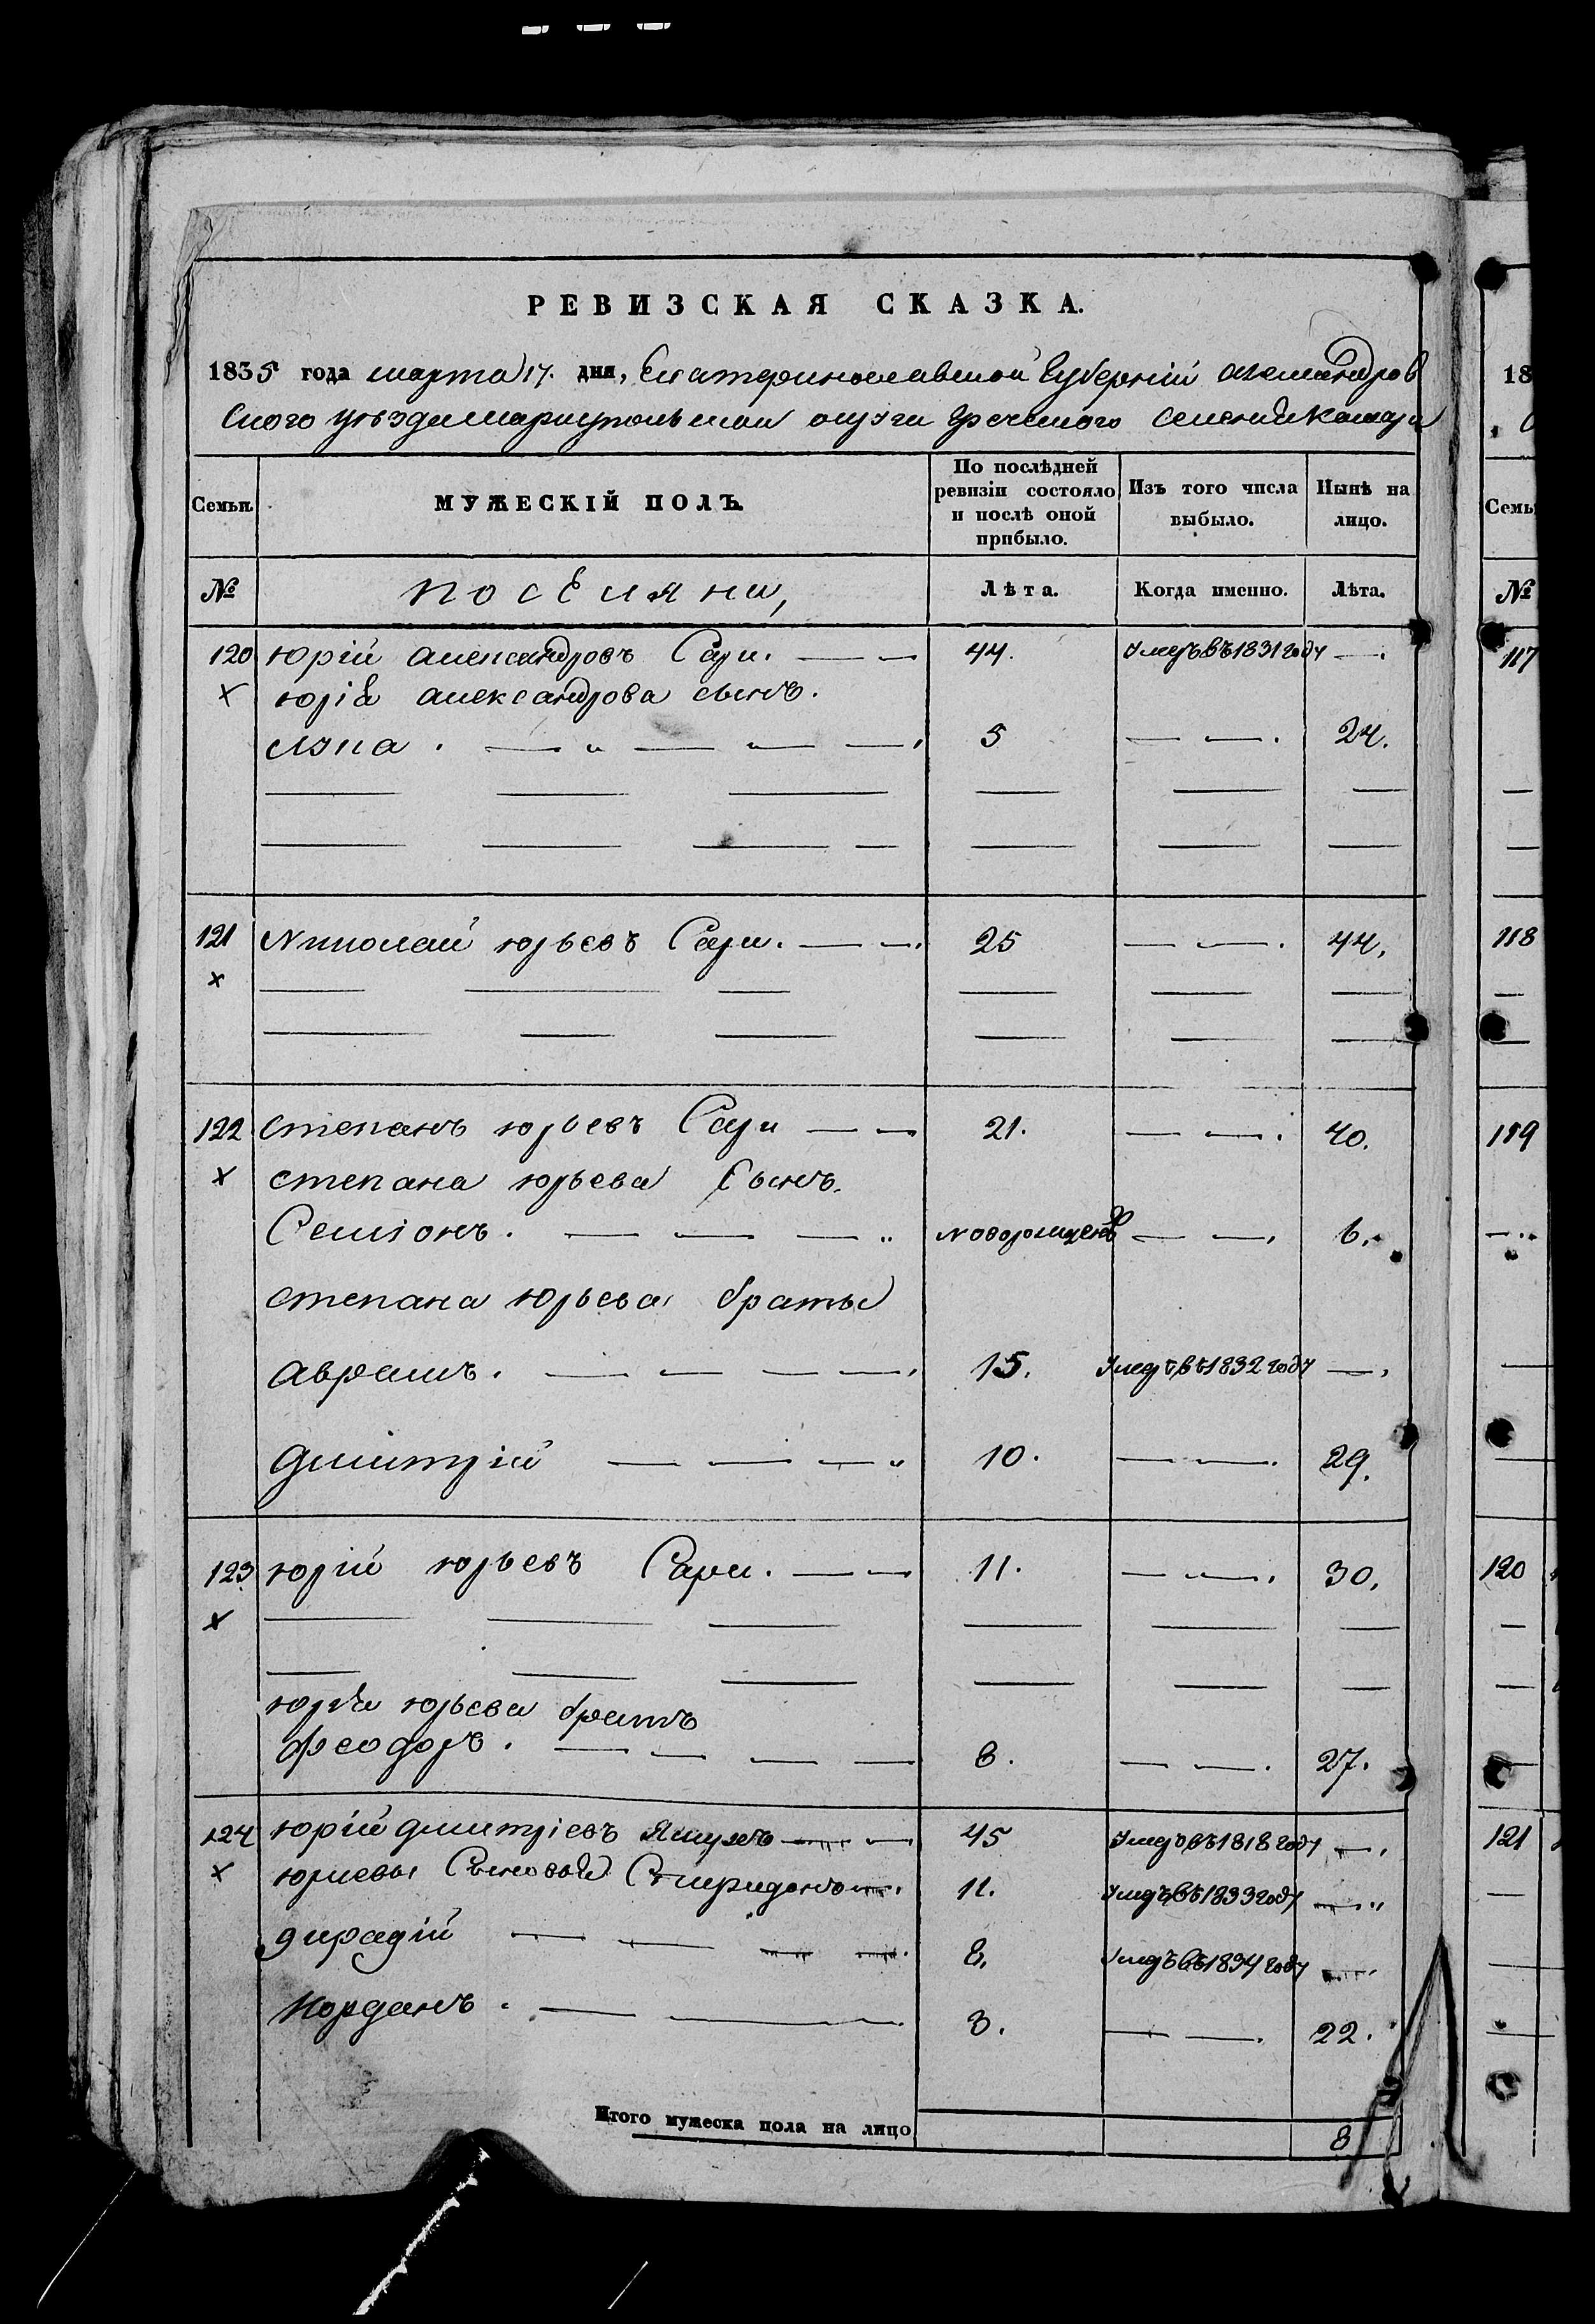 РЕВИЗСКАЯ СКАЗКА.
1835 года марта 17. дня, Екатеринославской Губерніи александров
ского уѣзда мариупольской округи греческого селенія
Семьи. МУЖЕСКІЙ ПОЛЪ. По послѣдней ревизіи состояло и послѣ оной прибыло. Изъ того числа выбыло. Нынѣ на лицо.
№ поселяни, Лѣта. Когда именно. Лѣта.
120 юрій александровъ Сари. 44. Умеръ въ 1831 году
юрія александрова сынъ.
5 24.
121 Николай юрьевъ Сари. 25 44.
122 степанъ юрьевъ Сари 21. 40.
степана юрьева сынъ.
Семіонъ. 6.
степана юрьева братья
аврамъ. 15. Умеръ въ 1832 году
дмитрій 10. 29.
123 юрій юрьевъ Сари. 11. 30.
юрія юрьева братъ
феодоръ. 8. 27.
124 юрій дмитріевъ 45 Умеръ въ 1818 году
юриевы Сыновья Спиридонъ 11. Умеръ въ 1833 году
8. Умеръ въ 1834 году
Иорданъ. 3. 22.
Итого мужеска пола на лицо 8
18
Семьи
№
117
118
119
120
121